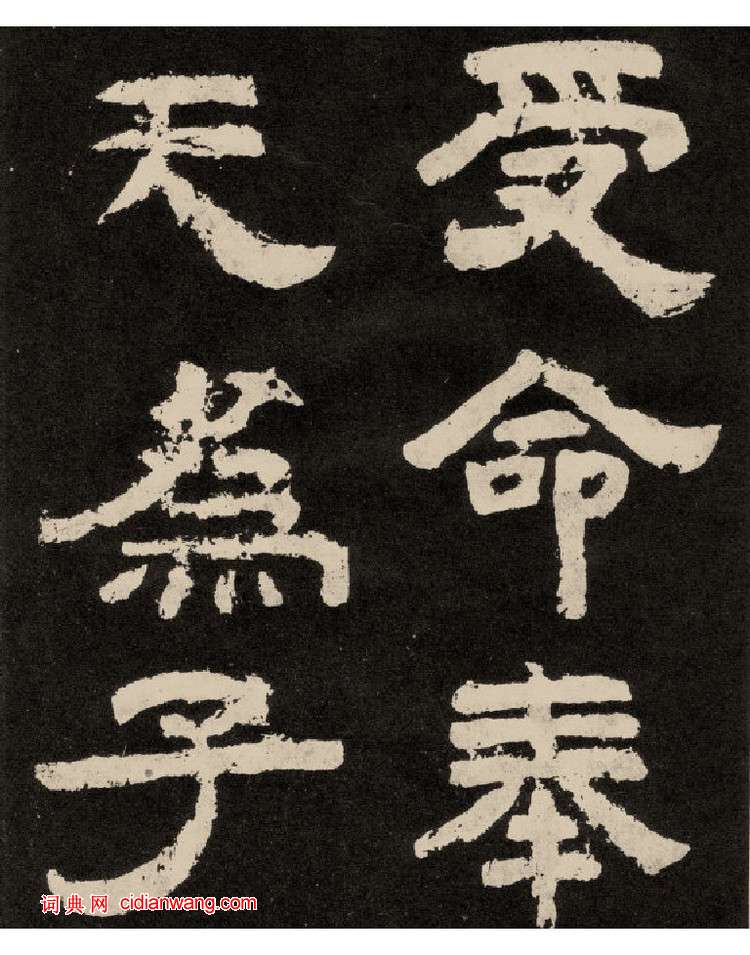 受命奉
天為子
词典网 cidianwang.com